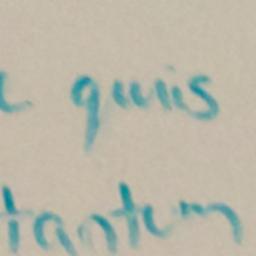 quis
tantum